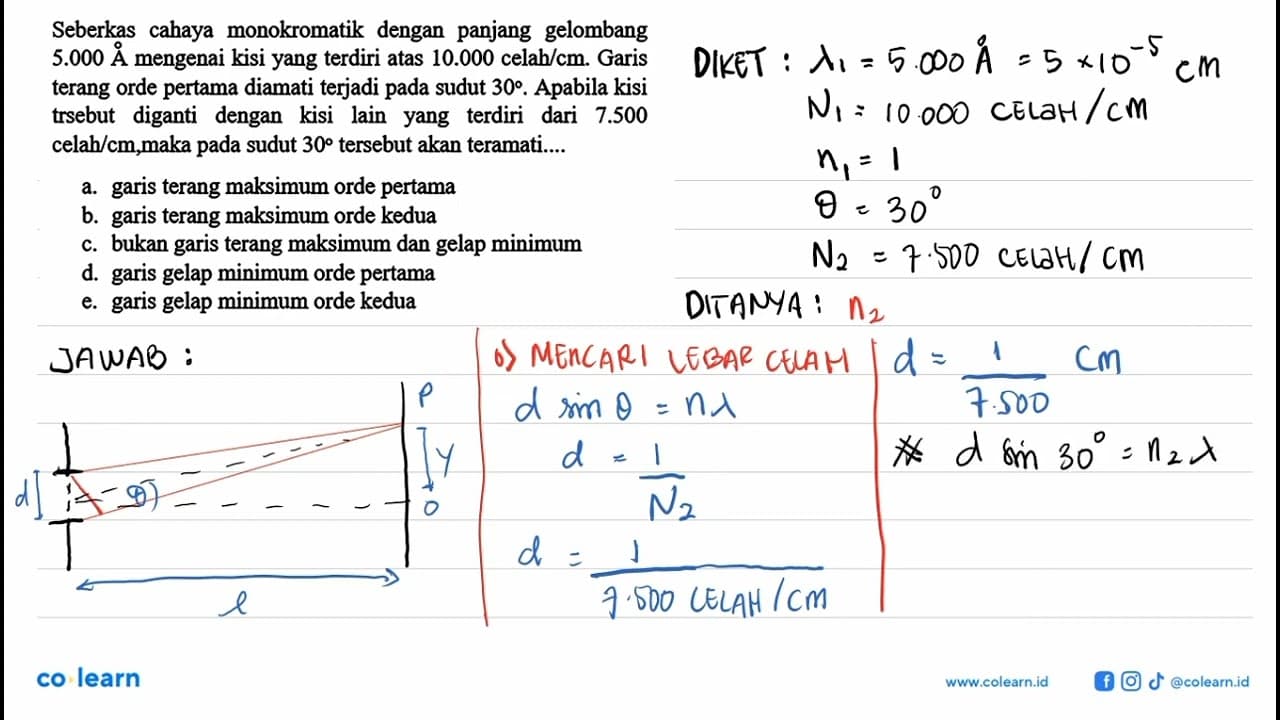 Seberkas cahaya monokromatik dengan panjang gelombang
5.000 Å mengenai kisi yang terdiri atas 10.000 celah/cm. Garis
terang orde pertama diamati terjadi pada sudut 30°. Apabila kisi
trsebut diganti dengan kisi lain yang terdiri dari 7.500
celah/cm,maka pada sudut 30° tersebut akan teramati....
a. garis terang maksimum orde pertama
b. garis terang maksimum orde kedua
c. bukan garis terang maksimum dan gelap minimum
d. garis gelap minimum orde pertama
e. garis gelap minimum orde kedua
DIKET : λ₁ = 5.000 Å = 5 × 10⁻⁵ cm
N₁ = 10.000 CELAH/CM
n₁ = 1
θ = 30°
N₂ = 7.500 CELAH/CM
DITANYA : n₂
JAWAB :
P
d
θ
Y
O
l
o) MENCARI LEBAR CELAH
d sin θ = nλ
d = 1
N₂
d = 1
7.500 CELAH/CM
d = 1 CM
7.500
* d sin 30° = n₂ λ
co learn
www.colearn.id
@colearn.id